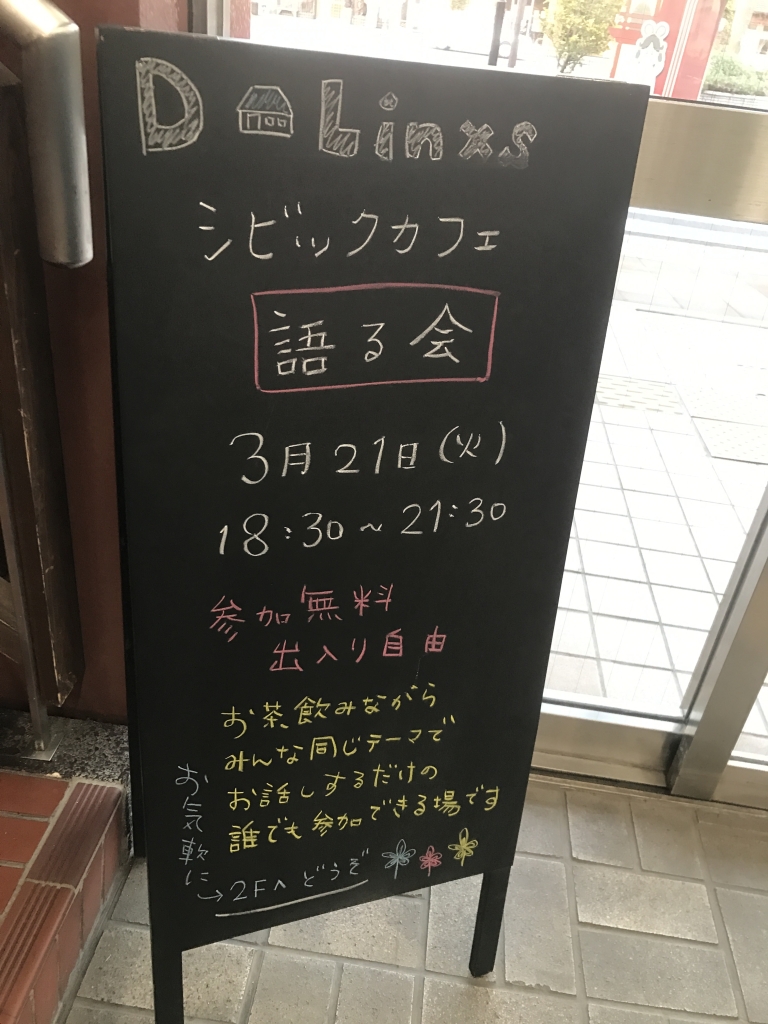 D Linxs
シビックカフェ
語る会
3月21日(火)
18:30~21:30
参加無料
出入り自由
お茶飲みながら
みんな同じテーマで
お話しするだけの
誰でも参加できる場です
お気軽に
→2Fへどうぞ